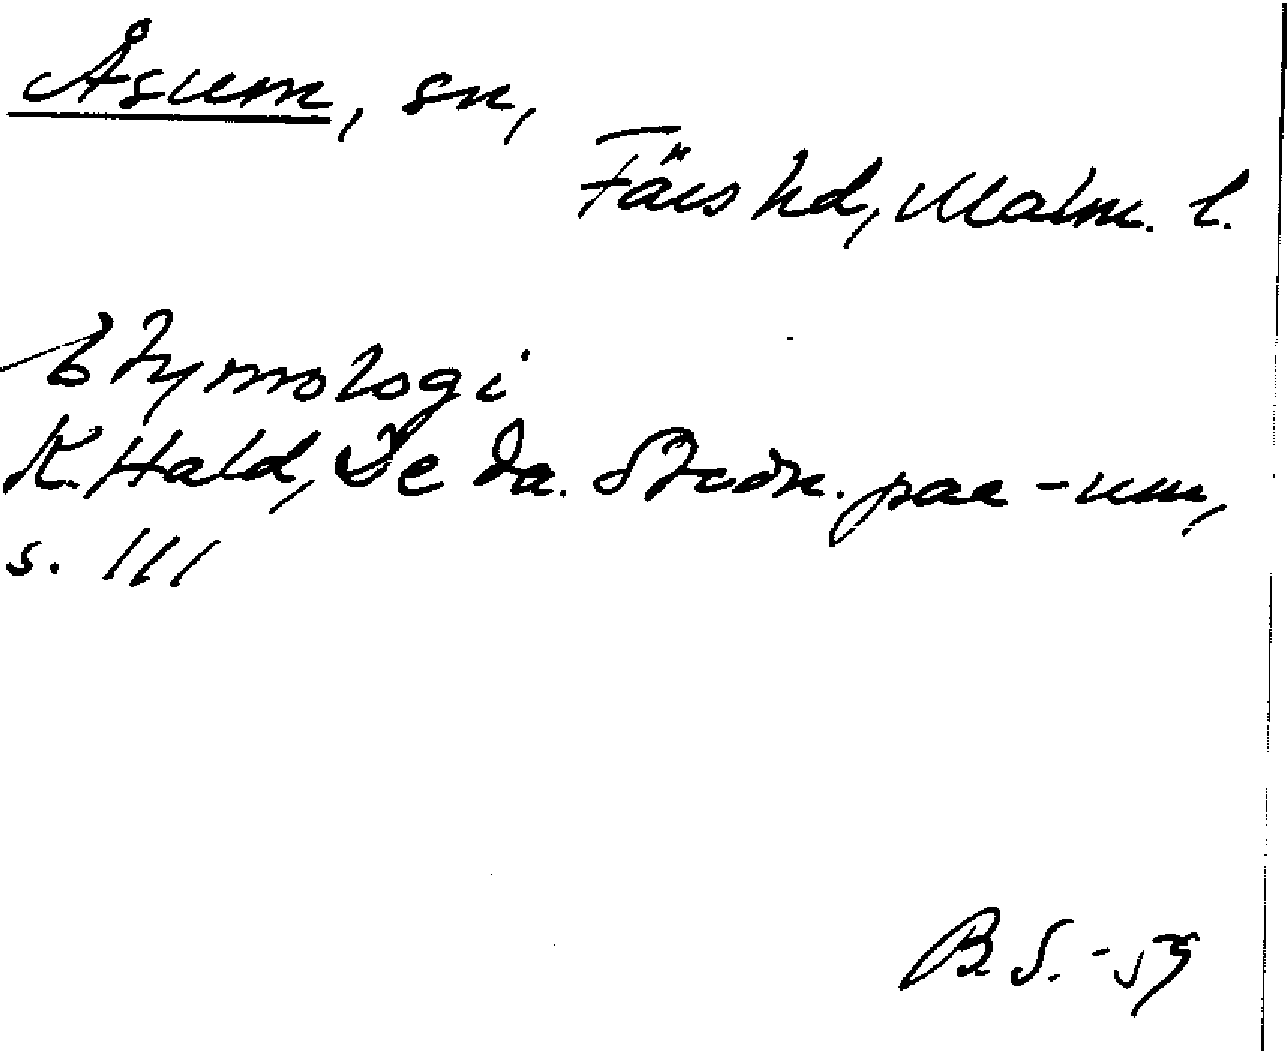 Åsum, sn,
Färs hd, Malm. l.
Etymologi
K. Hald, De da. Stedn. paa -um,
s. 111
B.S. -59